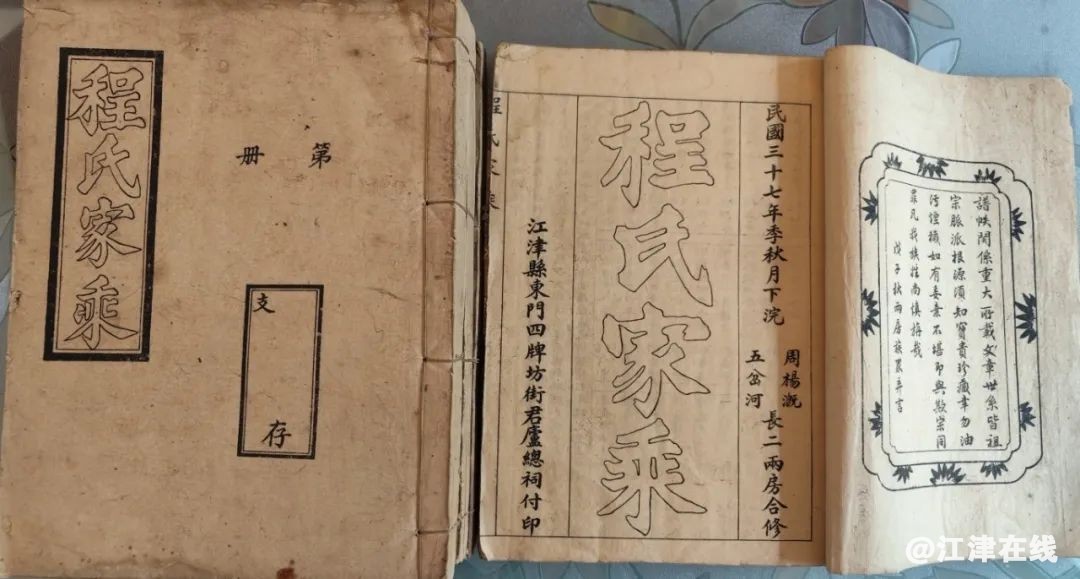 程氏家乘
第 册
支 存
民國三十七年季秋月下浣
周楊溉
五岔河
長二兩房合修
程氏家乘
江津縣東門四牌坊街君廬總祠付印
程氏家乘
譜帙関係重大所載文章世系皆祖
宗脈派根源須知寶貴珍藏幸勿油
污煙穢如有妄棄不堪即與欺同
罪凡我族姓尚慎旃哉
戊子秋兩房族眾弁言
@江津在线